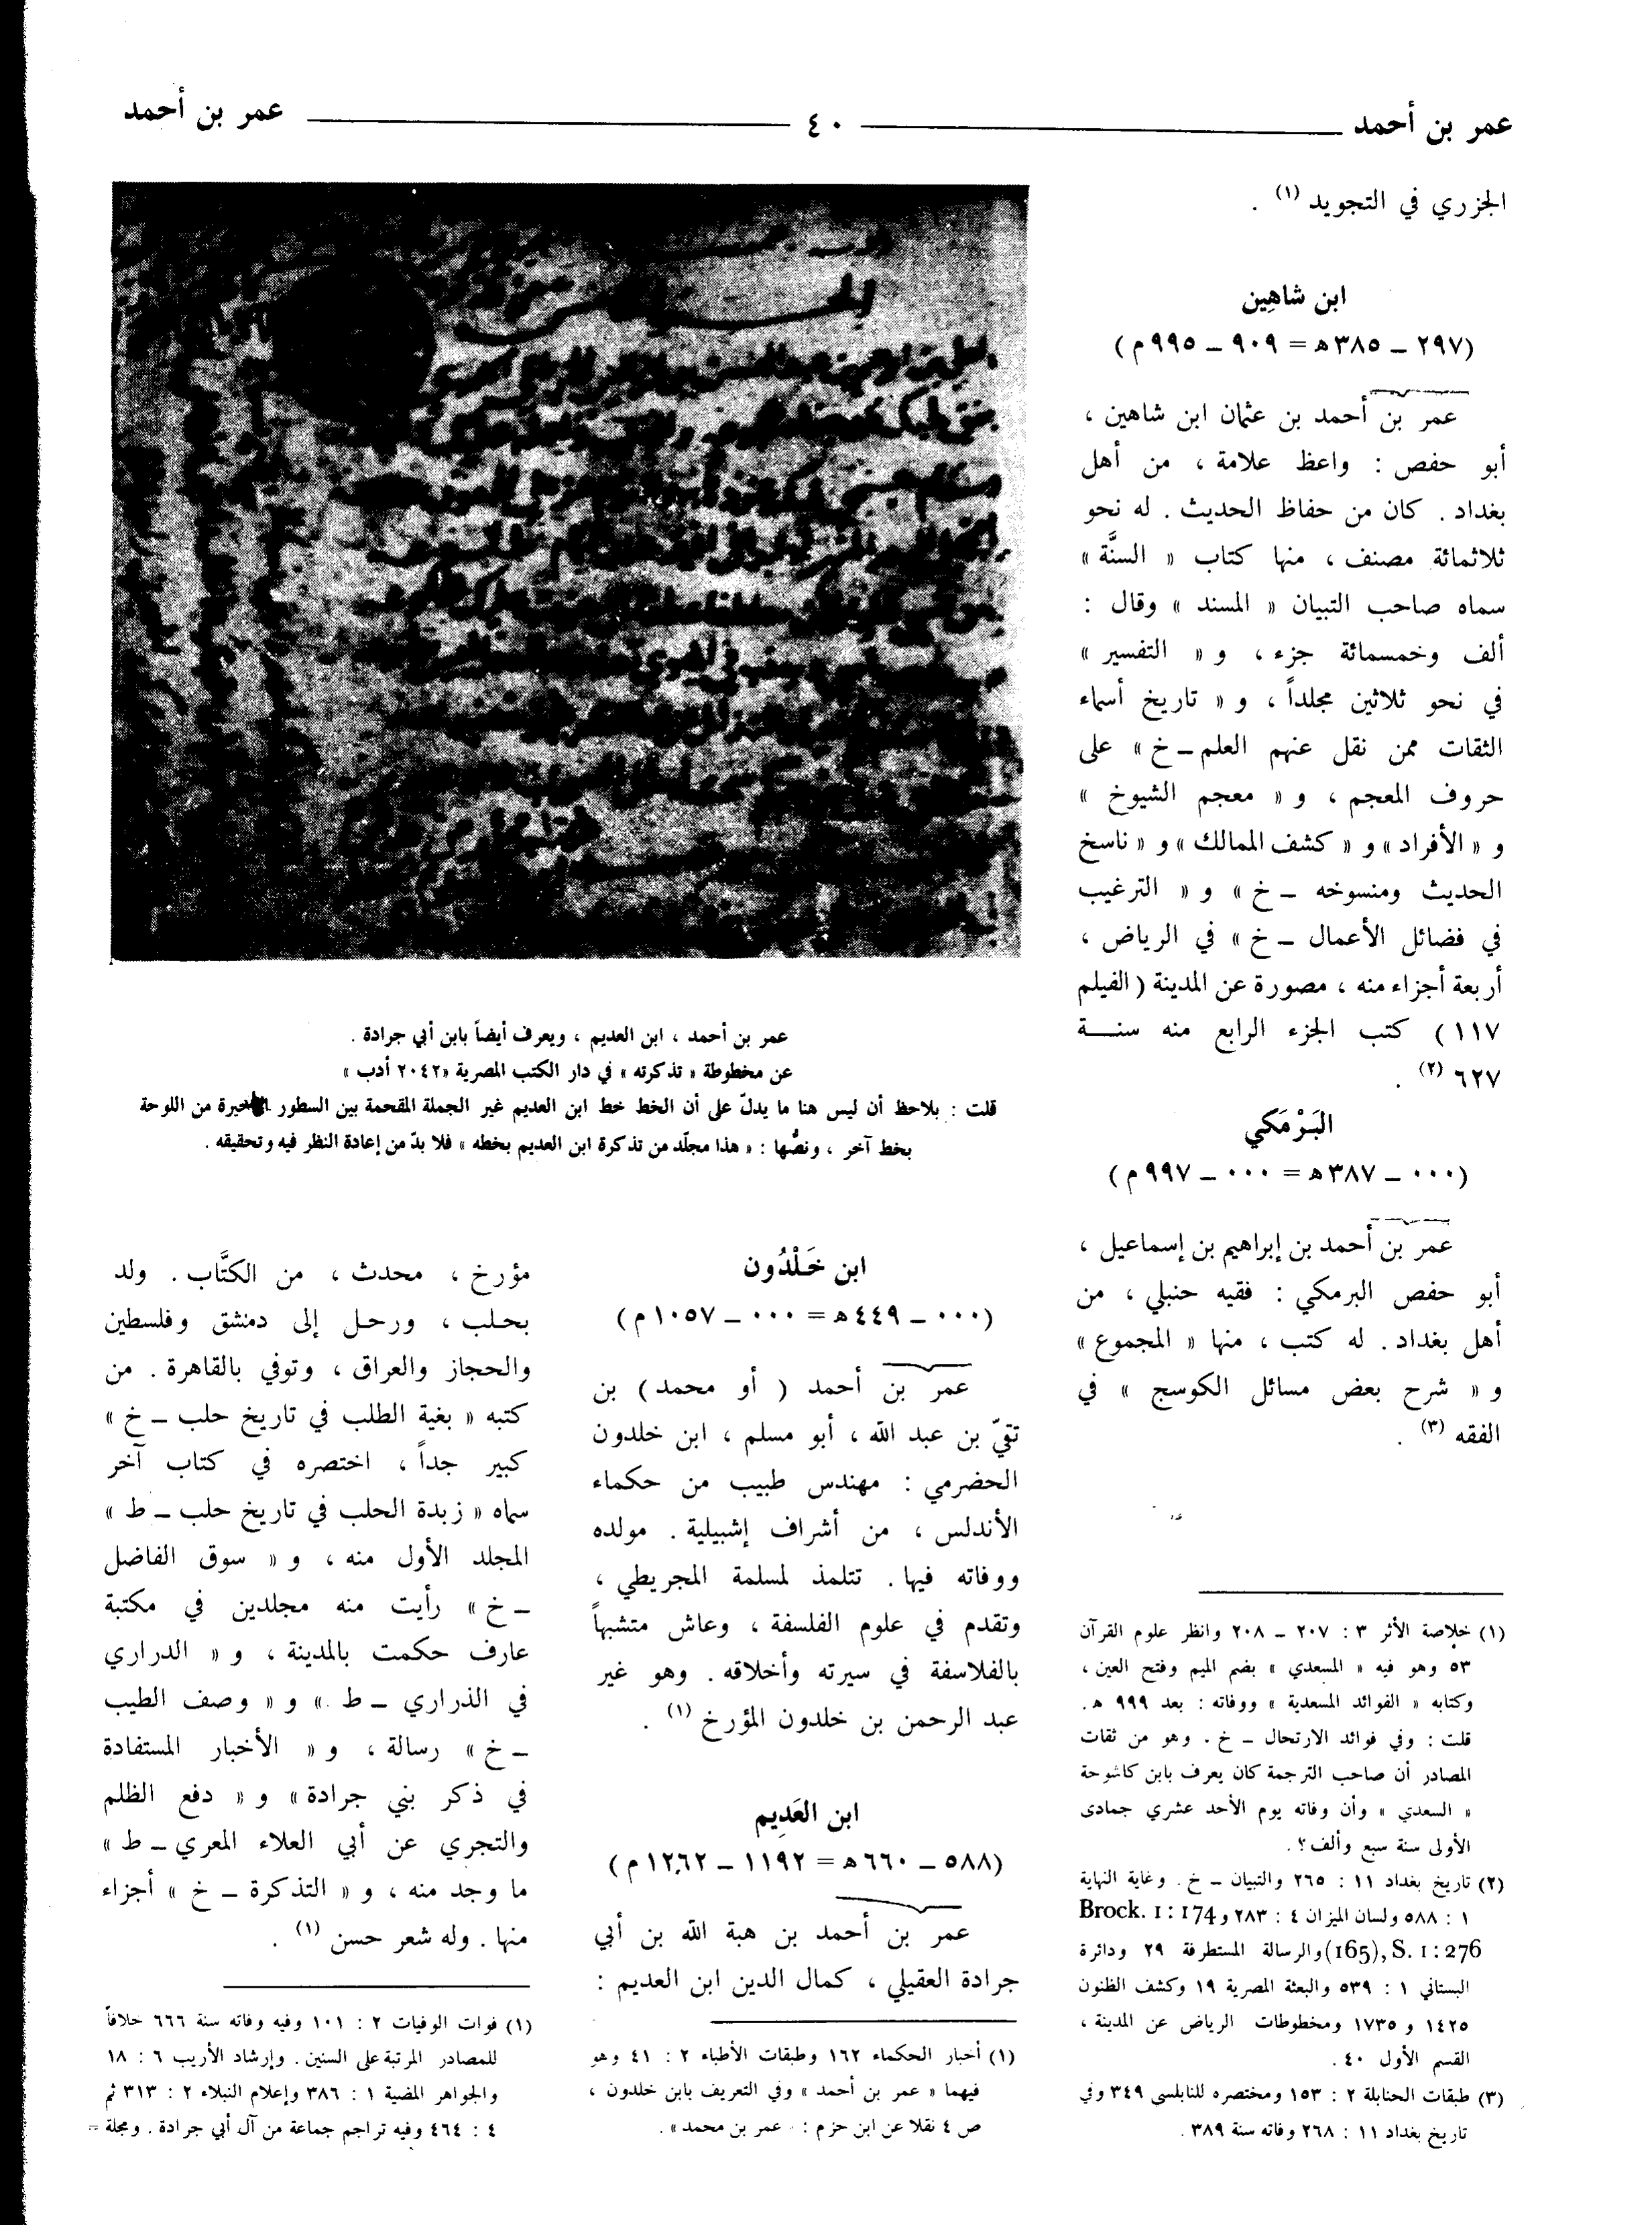 عمر بن أحمد
٤٠
عمر بن أحمد
الجزري في التجويد (١) .
ابن شاهِين
(٢٩٧ ــ ٣٨٥هـ = ٩٠٩ ــ ٩٩٥م)
عمر بن أحمد بن عثمان ابن شاهين ،
أبو حفص : واعظ علامة ، من أهل
بغداد . كان من حفاظ الحديث . له نحو
ثلاثمائة مصنف ، منها كتاب « السنَّة »
سماه صاحب التبيان « المسند » وقال :
ألف وخمسمائة جزء ، و « التفسير »
في نحو ثلاثين مجلداً ، و « تاريخ أسماء
الثقات ممن نقل عنهم العلم ــ خ » على
حروف المعجم ، و « معجم الشيوخ »
و « الأفراد » و « كشف الممالك » و « ناسخ
الحديث ومنسوخه ــ خ » و « الترغيب
في فضائل الأعمال ــ خ » في الرياض ،
أربعة أجزاء منه ، مصورة عن المدينة ( الفيلم
١١٧ ) كتب الجزء الرابع منه سنــــة
٦٢٧ (٢) .
البَرْمَكي
(٠٠٠ ــ ٣٨٧هـ = ٠٠٠ ــ ٩٩٧م)
عمر بن أحمد بن إبراهيم بن إسماعيل ،
أبو حفص البرمكي : فقيه حنبلي ، من
أهل بغداد . له كتب ، منها « المجموع »
و « شرح بعض مسائل الكوسج » في
الفقه (٣) .
(١) خلاصة الأثر ٣ : ٢٠٧ ــ ٢٠٨ وانظر علوم القرآن
٥٣ وهو فيه « المسعدي » بضم الميم وفتح العين ،
وكتابه « الفوائد المسعدية » ووفاته : بعد ٩٩٩ هـ .
قلت : وفي فوائد الارتحال ــ خ . وهو من ثقات
المصادر أن صاحب الترجمة كان يعرف بابن كاشوحة
« السعدي » وأن وفاته يوم الأحد عشري جمادى
الأولى سنة سبع وألف ؟ .
(٢) تاريخ بغداد ١١ : ٢٦٥ والتبيان ــ خ . وغاية النهاية
١ : ٥٨٨ ولسان الميزان ٤ : ٢٨٣ و Brock. 1 : 174
(165), S. 1 : 276 والرسالة المستطرفة ٢٩ ودائرة
البستاني ١ : ٥٣٩ والبعثة المصرية ١٩ وكشف الظنون
١٤٢٥ و ١٧٣٥ ومخطوطات الرياض عن المدينة ،
القسم الأول ٤٠ .
(٣) طبقات الحنابلة ٢ : ١٥٣ ومختصره للنابلسي ٣٤٩ وفي
تاريخ بغداد ١١ : ٢٦٨ وفاته سنة ٣٨٩ .
عمر بن أحمد ، ابن العديم ، ويعرف أيضاً بابن أبي جرادة .
عن مخطوطة « تذكرته » في دار الكتب المصرية «٢٠٤٢ أدب »
قلت : يلاحظ أن ليس هنا ما يدلّ على أن الخط خط ابن العديم غير الجملة المقحمة بين السطور الأخيرة من اللوحة
بخط آخر ، ونصُّها : « هذا مجلّد من تذكرة ابن العديم بخطه » فلا بدّ من إعادة النظر فيه وتحقيقه .
ابن خَلْدُون
(٠٠٠ ــ ٤٤٩هـ = ٠٠٠ ــ ١٠٥٧م)
عمر بن أحمد ( أو محمد ) بن
تقيّ بن عبد الله ، أبو مسلم ، ابن خلدون
الحضرمي : مهندس طبيب من حكماء
الأندلس ، من أشراف إشبيلية . مولده
ووفاته فيها . تتلمذ لمسلمة المجريطي ،
وتقدم في علوم الفلسفة ، وعاش متشبهاً
بالفلاسفة في سيرته وأخلاقه . وهو غير
عبد الرحمن بن خلدون المؤرخ (١) .
ابن العَدِيم
(٥٨٨ ــ ٦٦٠هـ = ١١٩٢ ــ ١٢٦٢م)
عمر بن أحمد بن هبة الله بن أبي
جرادة العقيلي ، كمال الدين ابن العديم :
(١) أخبار الحكماء ١٦٢ وطبقات الأطباء ٢ : ٤١ وهو
فيهما « عمر بن أحمد » وفي التعريف بابن خلدون ،
ص ٤ نقلا عن ابن حزم : عمر بن محمد » .
مؤرخ ، محدث ، من الكتَّاب . ولد
بحلب ، ورحل إلى دمشق وفلسطين
والحجاز والعراق ، وتوفي بالقاهرة . من
كتبه « بغية الطلب في تاريخ حلب ــ خ »
كبير جداً ، اختصره في كتاب آخر
سماه « زبدة الحلب في تاريخ حلب ــ ط »
المجلد الأول منه ، و « سوق الفاضل
ــ خ » رأيت منه مجلدين في مكتبة
عارف حكمت بالمدينة ، و « الدراري
في الذراري ــ ط » و « وصف الطيب
ــ خ » رسالة ، و « الأخبار المستفادة
في ذكر بني جرادة » و « دفع الظلم
والتجري عن أبي العلاء المعري ــ ط »
ما وجد منه ، و « التذكرة ــ خ » أجزاء
منها . وله شعر حسن (١) .
(١) فوات الوفيات ٢ : ١٠١ وفيه وفاته سنة ٦٦٦ خلافاً
للمصادر المرتبة على السنين . وإرشاد الأريب ٦ : ١٨
والجواهر المضية ١ : ٣٨٦ وإعلام النبلاء ٢ : ٣١٣ ثم
٤ : ٤٦٤ وفيه تراجم جماعة من آل أبي جرادة . ومجلة =